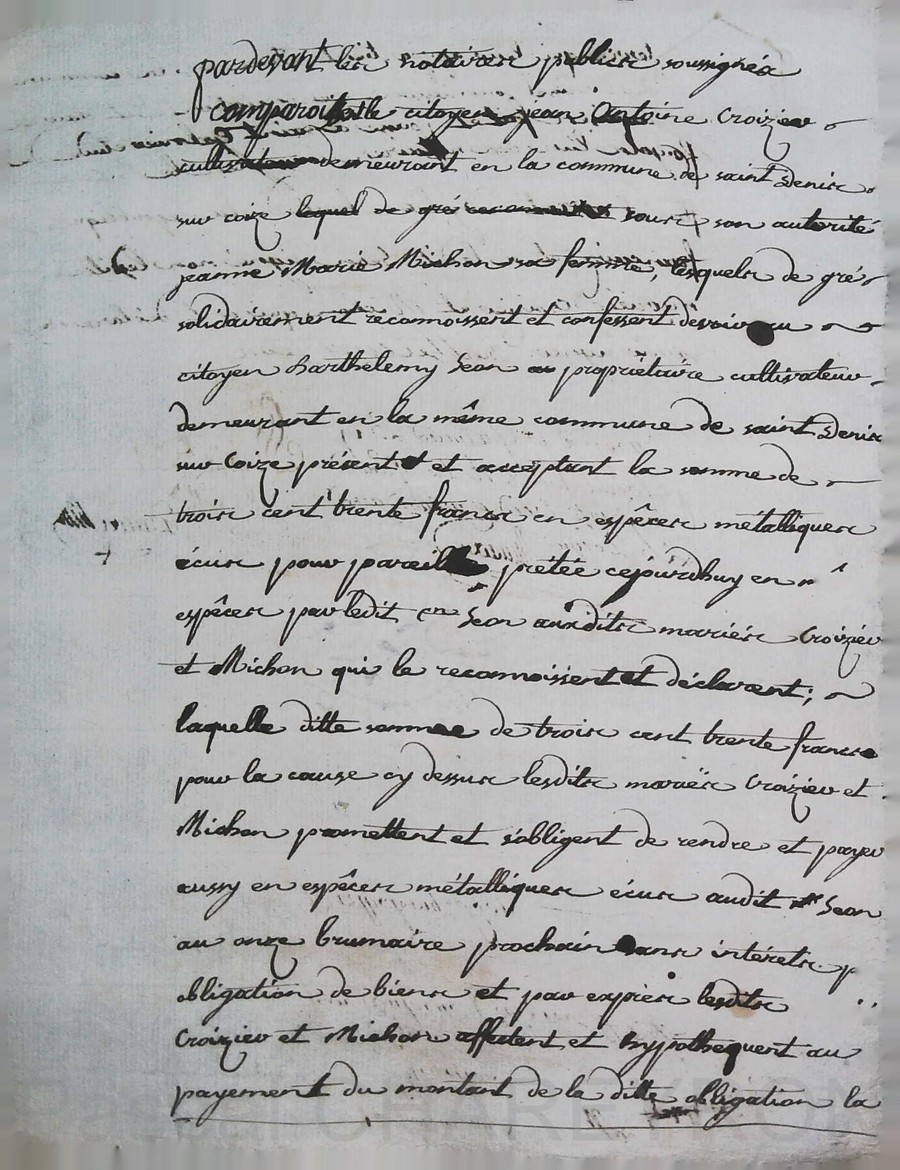 pardevant les notaires publics soussignés
comparoit le citoyen jean Antoine Croizier
cultivateur demeurant en la commune de saint Denis
sur coize lequel de gré sous son autorité
jeanne Marie Michon sa femme, lesquels de gré
solidairement reconnoissent et confessent devoir au
citoyen Barthelemy Seon propriétaire cultivateur
demeurant en la même commune de saint Denis
sur Coize présent et acceptant la somme de
trois cent trente francs en espêces métalliques
écus pour pareille prétée cejourdhuy en
espêces par ledit cen Seon auxdits mariés Croizier
et Michon qui le reconnoissent et déclarent;
laquelle ditte somme de trois cent trente francs
pour la cause cy dessus lesdits mariés Croizier et
Michon promettent et s'obligent de rendre et payer
aussy en espêces métalliques écus audit Seon
au onze brumaire prochain sans intérets p
obligation de biens et par exprès lesdits
Croizier et Michon affectent et hypothequent au
payement du montant de la ditte obligation la